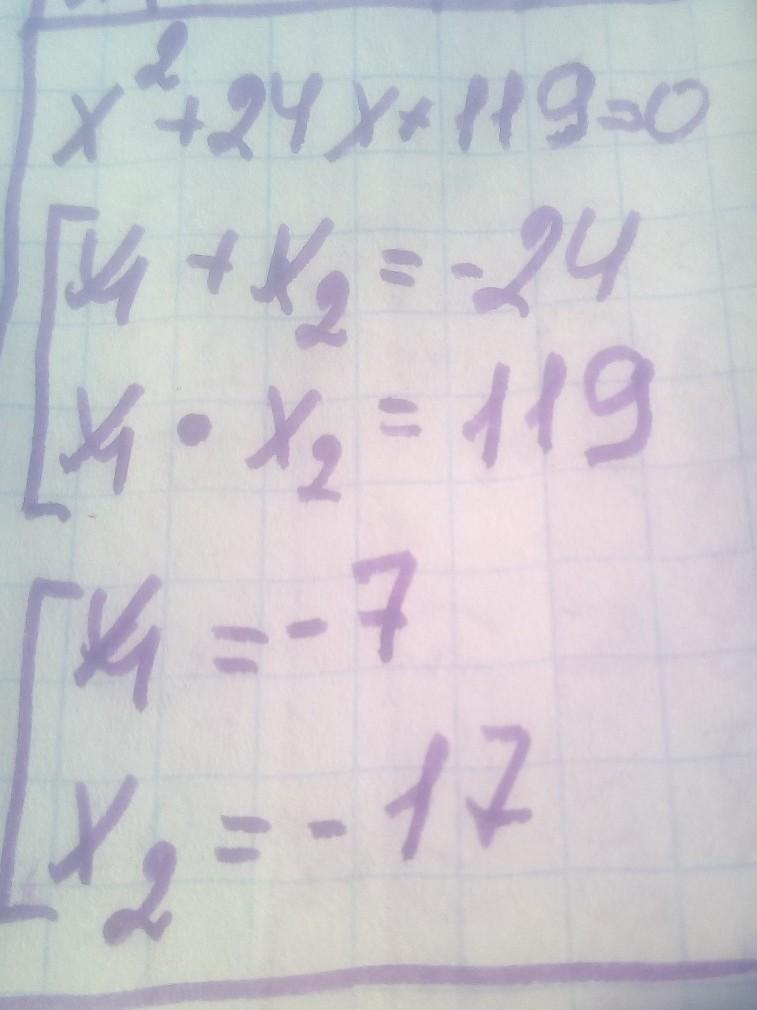 x²+24x+119=0
x₁ + x₂ = -24
x₁ • x₂ = 119
x₁ = -7
x₂ = -17